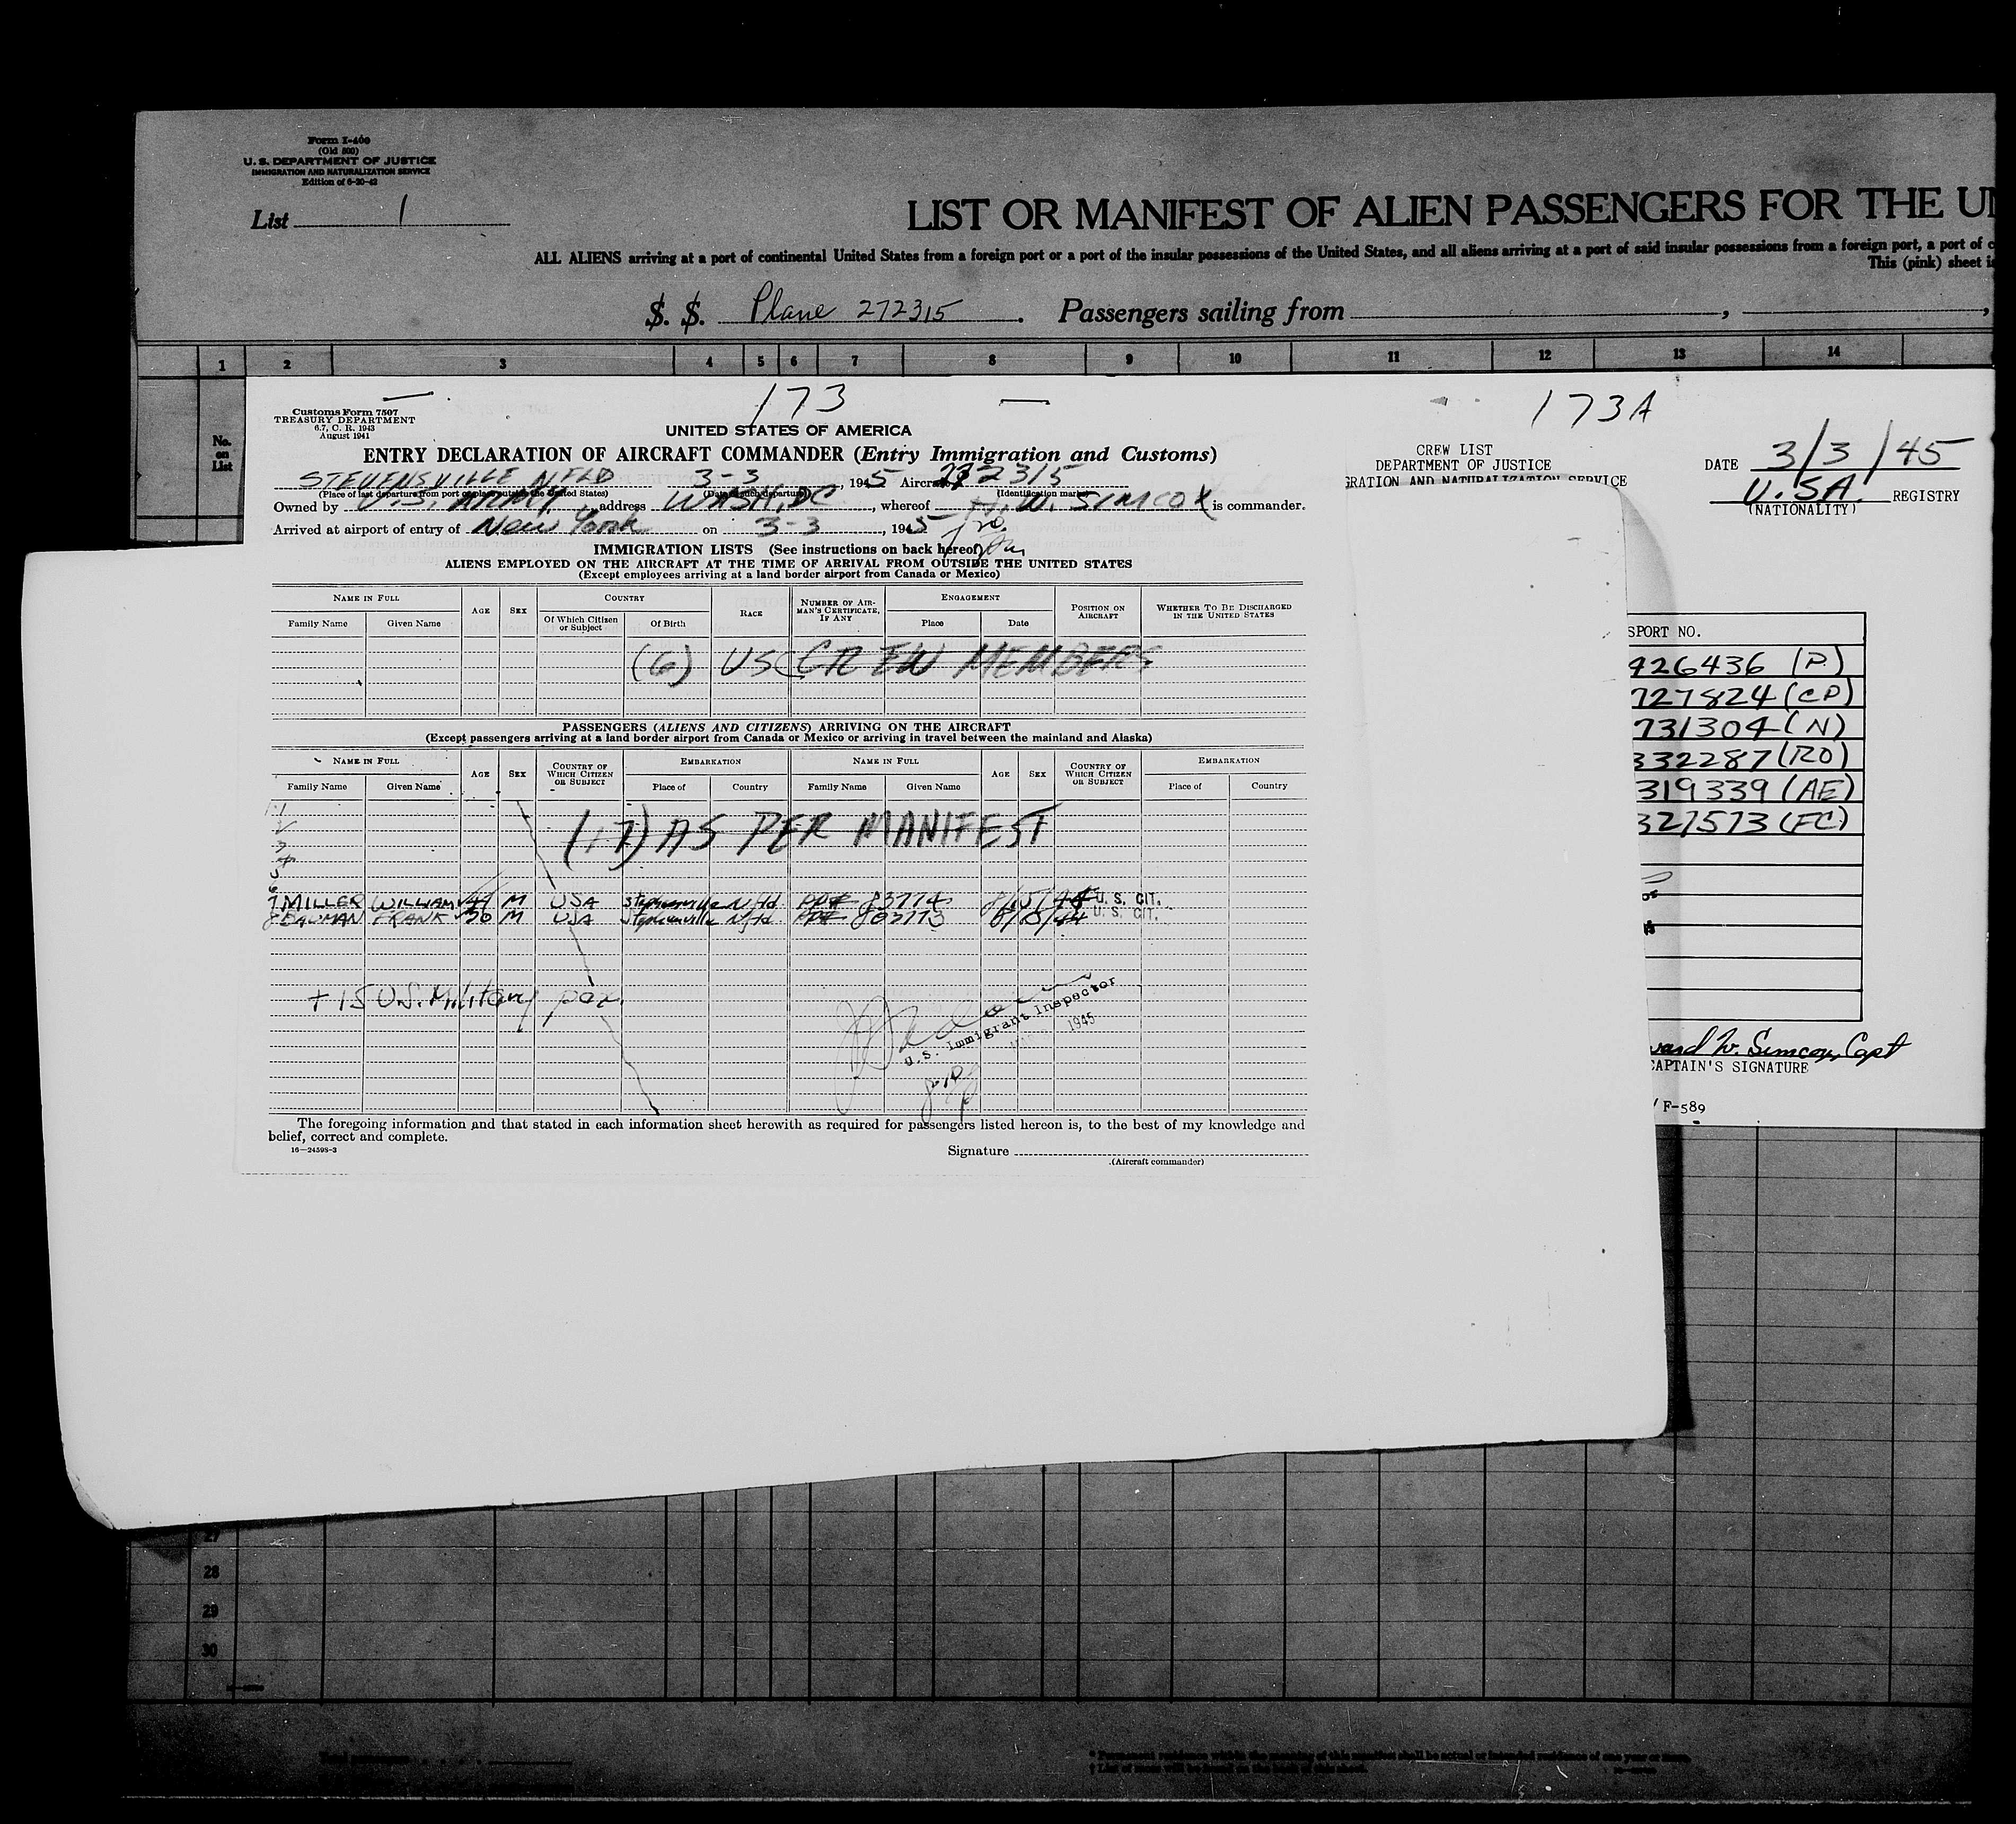 Form I-400
(Old 500)
U. S. DEPARTMENT OF JUSTICE
IMMIGRATION AND NATURALIZATION SERVICE
Edition of 6-20-42
List 1
LIST OR MANIFEST OF ALIEN PASSENGERS FOR THE UN
ALL ALIENS arriving at a port of continental United States from a foreign port or a port of the insular possessions of the United States, and all aliens arriving at a port of said insular possessions from a foreign port, a port of c
This (pink) sheet is
S. S. Plane 272315. Passengers sailing from , ,
1 2 3 4 5 6 7 8 9 10 11 12 13 14
No. on List
173
Customs Form 7507
TREASURY DEPARTMENT
6.7, C. R. 1943
August 1941
UNITED STATES OF AMERICA
ENTRY DECLARATION OF AIRCRAFT COMMANDER (Entry Immigration and Customs)
STEVENSVILLE NFLD 3-3, 1945 Aircraft 272315
(Place of last departure from port or place outside the United States) (Date of such departure) (Identification marks)
Owned by U.S. ARMY, address WASH, DC, whereof H. W. SIMCOX is commander.
Arrived at airport of entry of New York on 3-3, 1945
IMMIGRATION LISTS (See instructions on back hereof)
ALIENS EMPLOYED ON THE AIRCRAFT AT THE TIME OF ARRIVAL FROM OUTSIDE THE UNITED STATES
(Except employees arriving at a land border airport from Canada or Mexico)
NAME IN FULL AGE SEX COUNTRY RACE NUMBER OF AIRMAN'S CERTIFICATE, IF ANY ENGAGEMENT POSITION ON AIRCRAFT WHETHER TO BE DISCHARGED IN THE UNITED STATES
Family Name Given Name Of Which Citizen or Subject Of Birth Place Date
(6) USC CREW MEMBERS
PASSENGERS (ALIENS AND CITIZENS) ARRIVING ON THE AIRCRAFT
(Except passengers arriving at a land border airport from Canada or Mexico or arriving in travel between the mainland and Alaska)
NAME IN FULL AGE SEX COUNTRY OF WHICH CITIZEN OR SUBJECT EMBARKATION NAME IN FULL AGE SEX COUNTRY OF WHICH CITIZEN OR SUBJECT EMBARKATION
Family Name Given Name Place of Country Family Name Given Name Place of Country
1
2
3
4
5
6
(17) AS PER MANIFEST
7 MILLER WILLIAM 44 M USA Stephenville Nfld PP# 83774 8/15/44 U. S. CIT.
8 BAUMAN FRANK 20 M USA Stephenville Nfld PP# 83773 8/15/44 U. S. CIT.
+ 15 U.S. Military pax.
U.S. Immigrant Inspector
1945
The foregoing information and that stated in each information sheet herewith as required for passengers listed hereon is, to the best of my knowledge and
belief, correct and complete.
16—24598-3
Signature
(Aircraft commander)
173A
CREW LIST
DEPARTMENT OF JUSTICE
GRATION AND NATURALIZATION SERVICE
DATE 3/3/45
U.S.A. REGISTRY
(NATIONALITY)
SPORT NO.
926436 (P)
727824 (CP)
731304 (N)
332287 (RO)
319339 (AE)
327573 (FC)
ward W. Simcox, Capt
CAPTAIN'S SIGNATURE
F-589
27
28
29
30
* Permanent residence within the meaning of this manifest shall be actual or intended residence of one year or more.